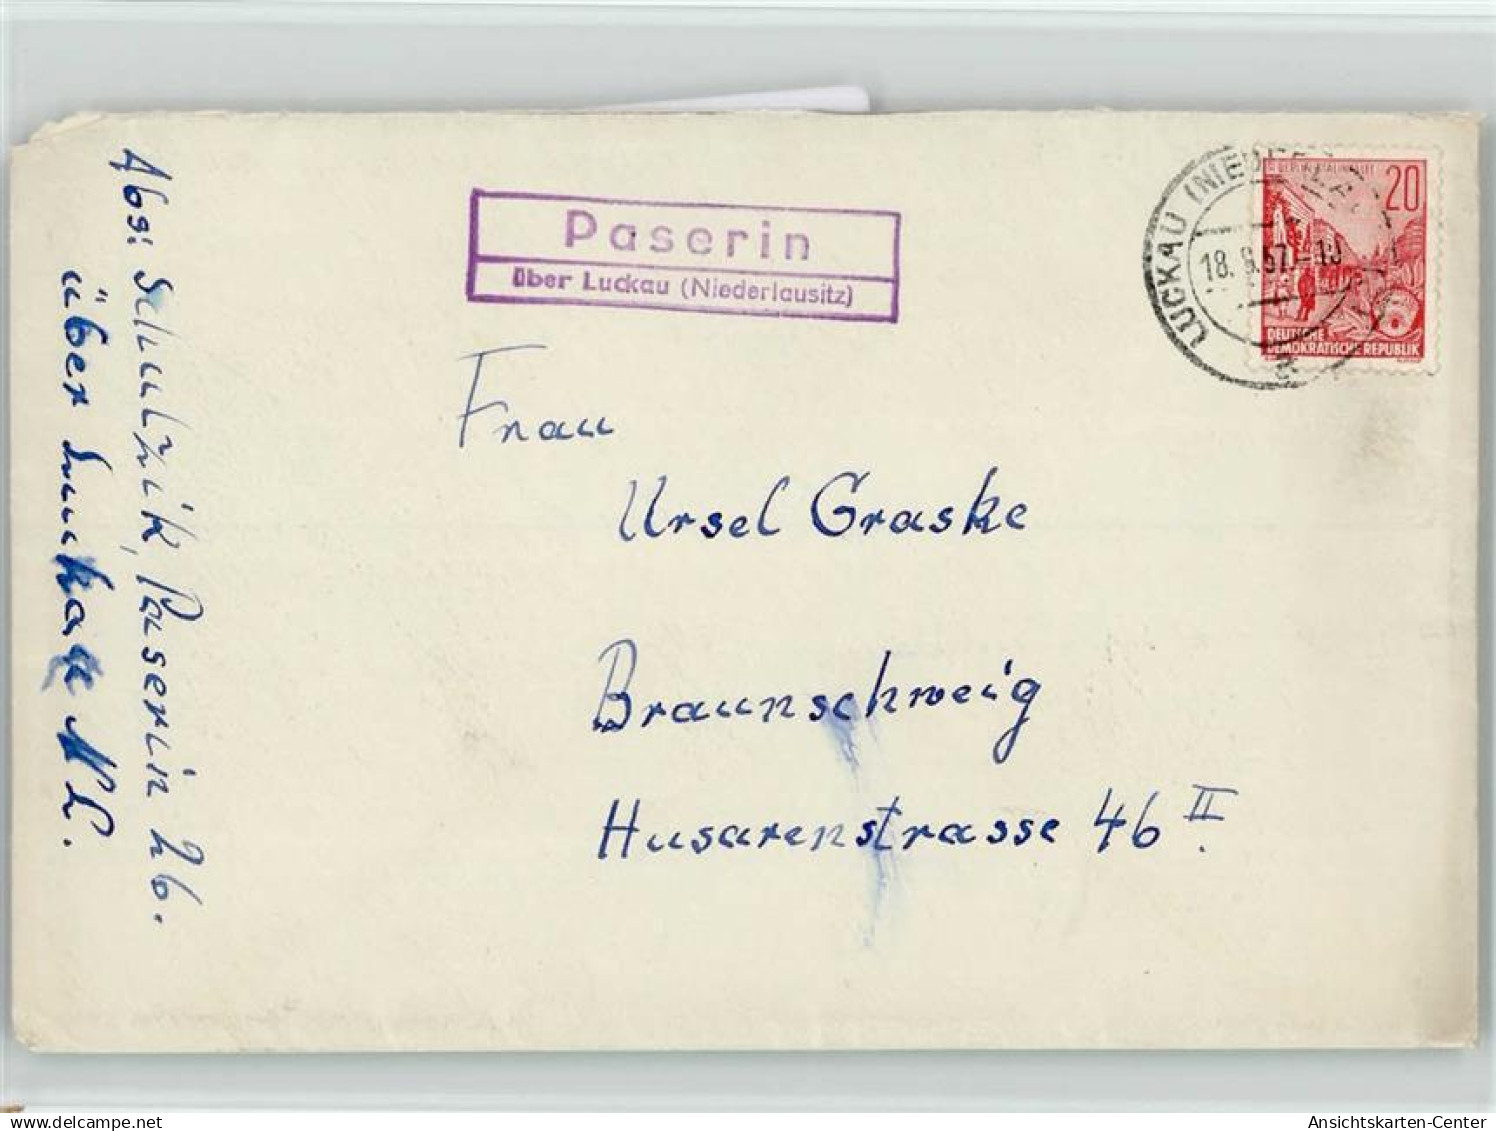 Abs: Schulzik, Paserin 26.
über Luckau NL.
Paserin
über Luckau (Niederlausitz)
LUCKAU (NIEDERLA
18. 9.57.-18
20
DEUTSCHE
DEMOKRATISCHE REPUBLIK
Frau
Ursel Graske
Braunschweig
Husarenstrasse 46 II.
www.delcampe.net
Ansichtskarten-Center